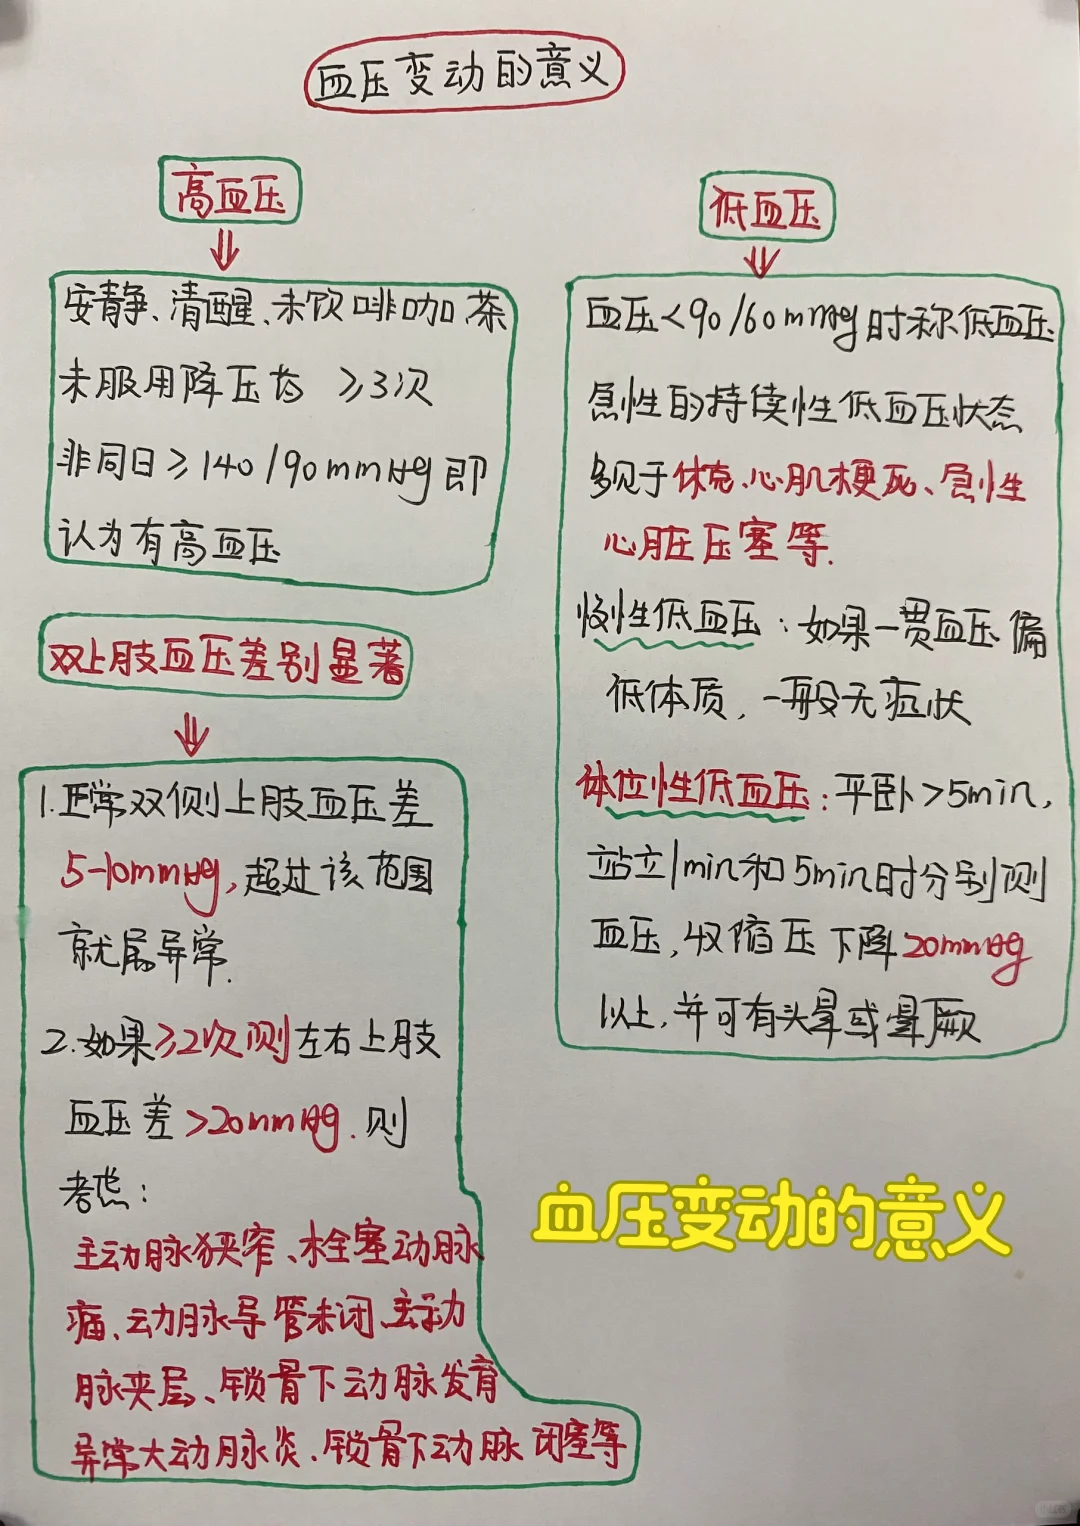 血压变动的意义
高血压
安静、清醒、未饮啡咖、茶
未服用降压药 ≥3次
非同日≥140/90mmHg即
认为有高血压
双上肢血压差别显著
1.正常双侧上肢血压差
5-10mmHg,超过该范围
就属异常.
2.如果≥2次测左右上肢
血压差>20mmHg.则
考虑:
主动脉狭窄、栓塞动脉
瘤、动脉导管未闭、主动
脉夹层、锁骨下动脉发育
异常大动脉炎、锁骨下动脉闭塞等
低血压
血压<90/60mmHg时称低血压
急性的持续性低血压状态
多见于休克、心肌梗死、急性
心脏压塞等.
慢性低血压:如果一贯血压偏
低体质,一般无症状
体位性低血压:平卧>5min,
站立1min和5min时分别测
血压,收缩压下降20mmHg
以上,并可有头晕或晕厥
血压变动的意义